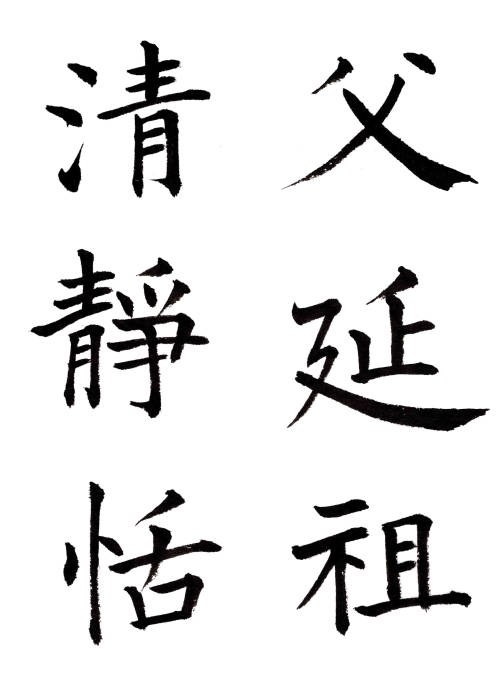 父延祖
清静恬